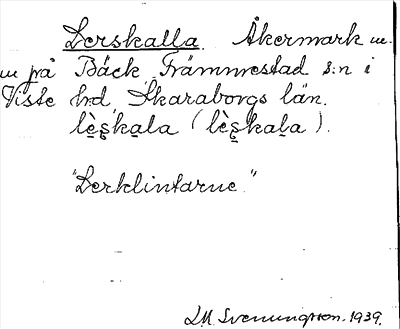 Lerskalla. Åkermark m.
m på Bäck, Främmestad s:n i
Viste hd, Skaraborgs län.
lè̱s̱kala (lè̱s̱kaḻa).
"Lerklintarne."
D.M. Svenungsson. 1939.